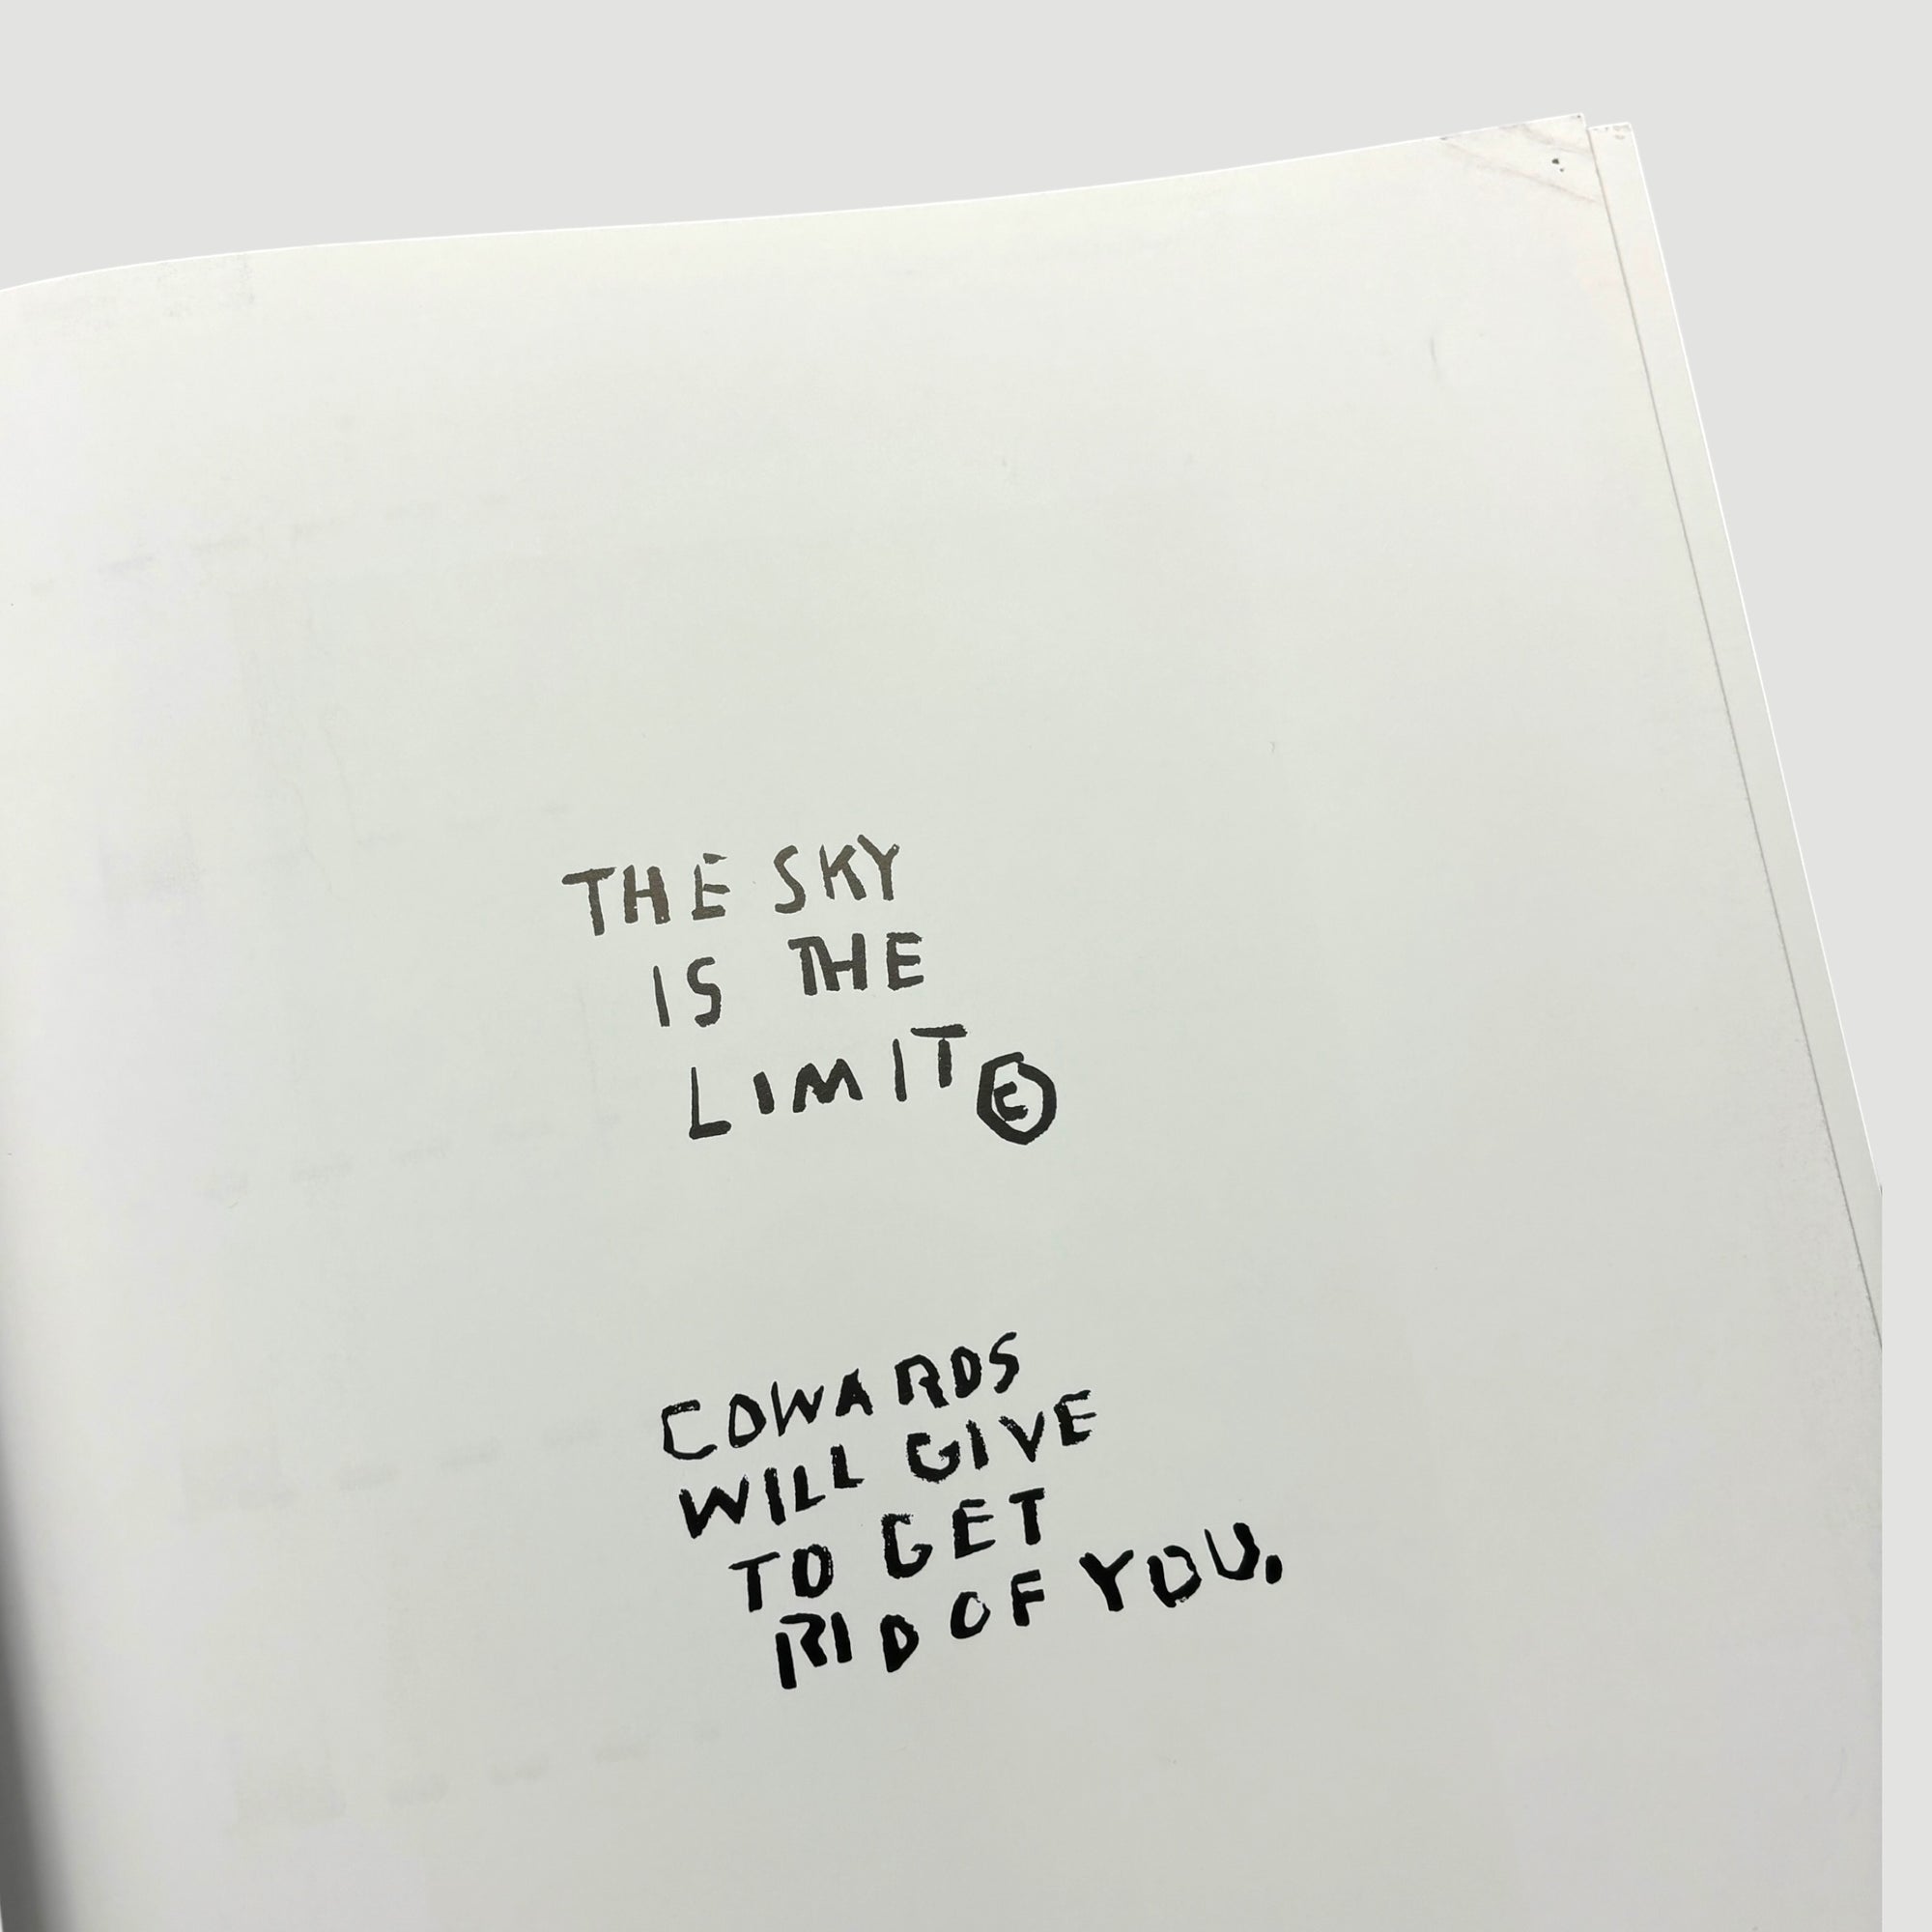 THE SKY
IS THE
LIMIT Ⓔ
COWARDS
WILL GIVE
TO GET
RID OF YOU.